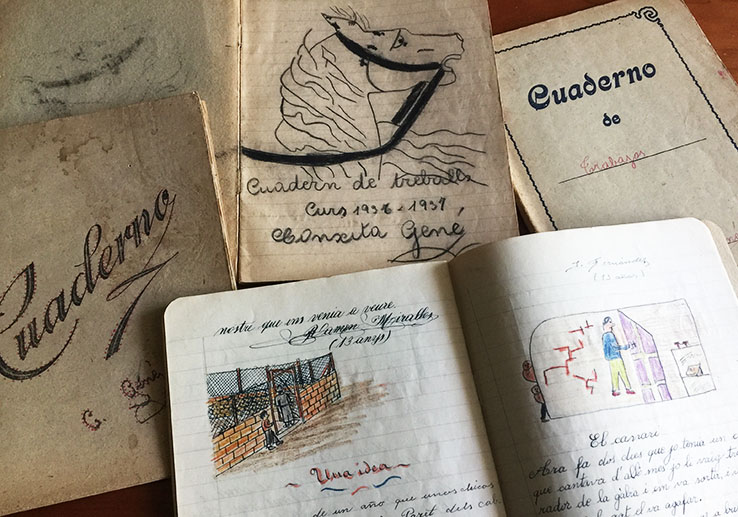 Cuaderno
C. Gené
Cuadern de treballs
Curs 1936-1937
Conxita Gené
Cuaderno
de
trabajos
nostre que ens venia a veure.
Ramon Miralles
(13 anys)
Una idea
de un año que unes chicos
Parit dels cab
J. Fernández
(13 anys)
El canari
Ara fa dos dies que jo tenia un c
que cantava d'allò més jo le vaig tr
rador de la gàbia i em va sortir, i
el gat el va agafar.